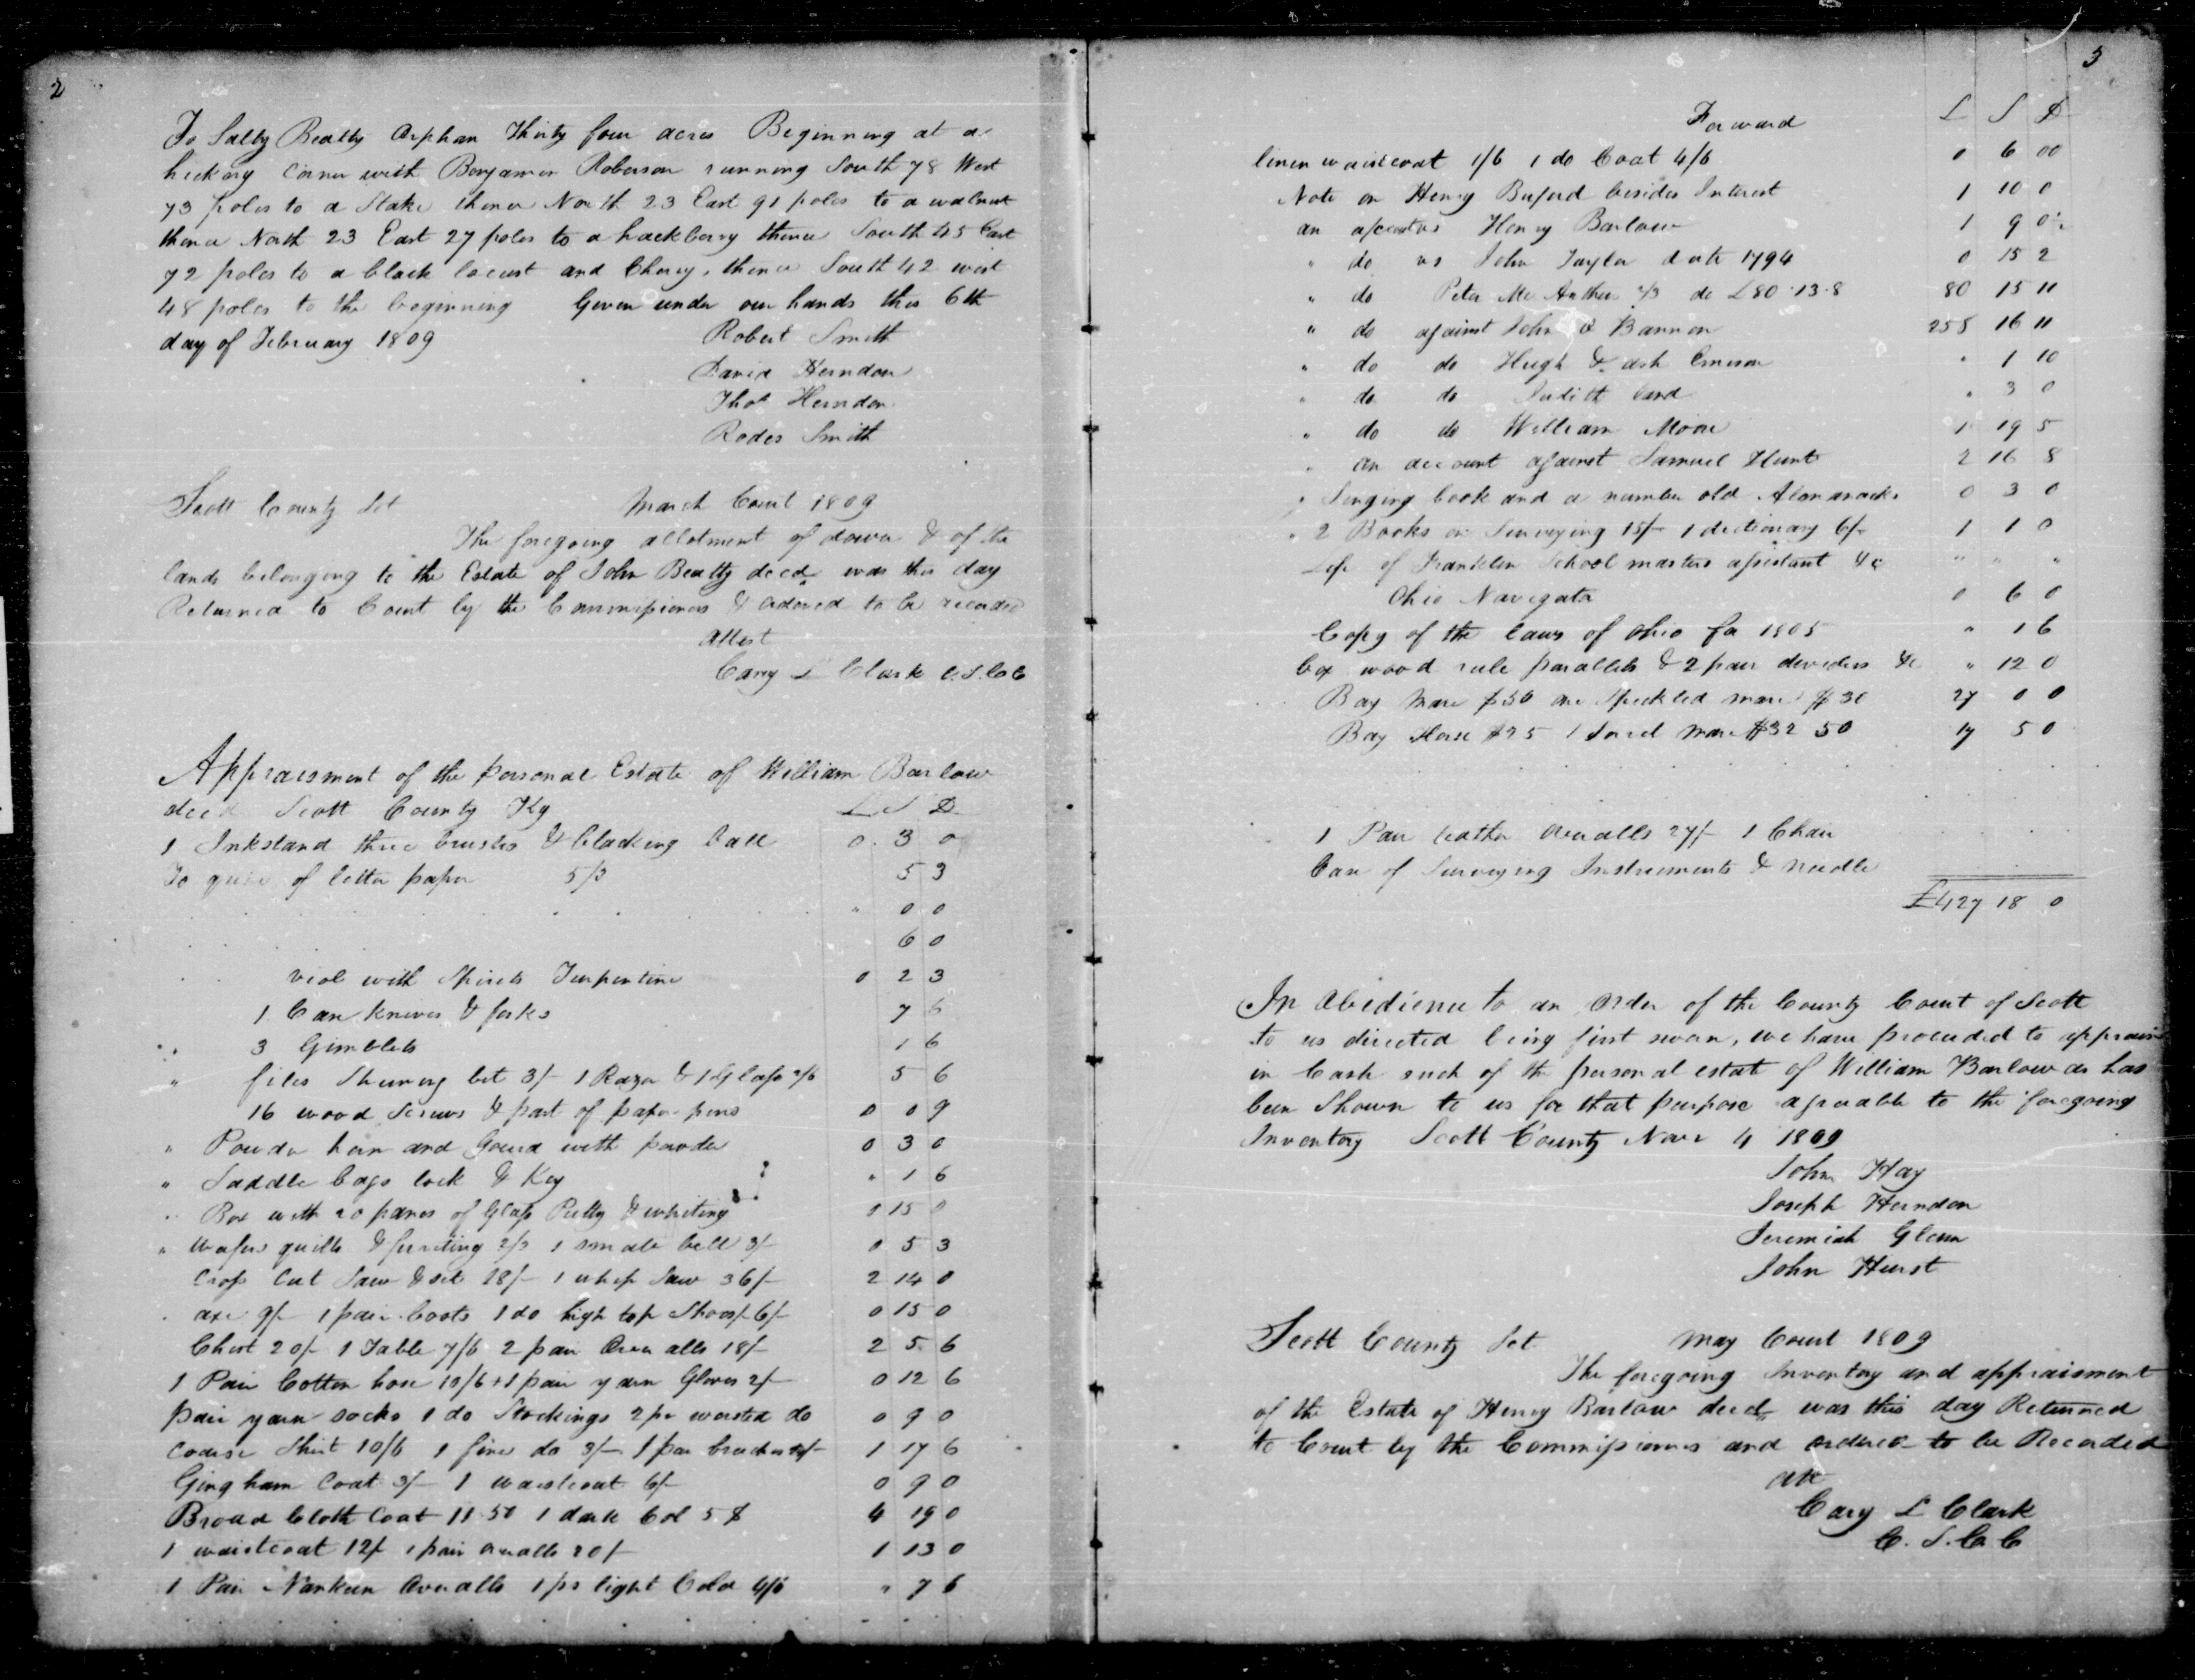 2
To Sally Beatty Orphan Thirty four acres Beginning at a
hickory Corner with Benjamin Roberson running South 78 West
73 poles to a Stake thence North 23 East 91 poles to a walnut
thence North 23 East 27 poles to a hackberry thence South 45 East
72 poles to a black locust and Cherry, thence South 42 west
48 poles to the beginning Given under our hands this 6th
day of February 1809 Robert Smith
David Herndon
Thos Herndon
Rodes Smith
Scott County Sct March Court 1809
The foregoing allotment of dower & of the
lands belonging to the Estate of John Beatty decd was this day
Returned to Court by the Commissioners & ordered to be recorded
Attest
Cary L Clark C.S.C.C
Appraisment of the personal Estate of William Barlow
decd Scott County Ky L S D
1 Inkstand three brushes & blacking ball 0. 3 0
To quire of letter paper 5/3 5 3
" 0 0
6 0
viol with Spirits Turpentine 0 2 3
1 Case knives & forks 7 6
3 Gimblets 1 6
" files Shuning bit 3/- 1 Razor & 1 Glass 2/6 5 6
16 wood Screws & part of paper pins 0 0 9
" Powder horn and Gourd with powder 0 3 0
" Saddle bags lock & Key " 1 6
" Box with 20 panes of Glass Putty & whiting 0 15 0
" Wafers quills & ferriting 2/3 1 small bell 3/- 0 5 3
Cross Cut Saw & set 18/- 1 whip Saw 36/- 2 14 0
axe 9/- 1 pair boots 1 do high top Shoes/- 6/- 0 15 0
Chest 20/- 1 Table 7/6 2 pair Overalls 18/- 2 5 6
1 Pair Cotton hose 10/6 + 1 pair yarn Gloves 2/- 0 12 6
pair yarn socks 1 do Stockings 2 pr worsted do 0 9 0
Coarse Shirt 10/6 1 fine do 9/- 1 pair breeches 1 17 6
Gingham Coat 3/- 1 waistcoat 6/- 0 9 0
Broad Cloth Coat 11.50 1 dark Col 5 $ 4 19 0
1 waistcoat 12/- 1 pair overalls 20/- 1 13 0
1 Pair Nankeen Overalls 1 ps light Color 4/6 " 7 6
3
Forward L S D
linen waistcoat 1/6 1 do Coat 4/6 0 6 00
Note on Henry Buford besides Interest 1 10 0
an acct vs Henry Barlow 1 9 0
" do vs John Taylor date 1794 0 15 2
" do Peter Mc Arthur do £80.13.8 80 15 11
" do against John O Bannon 258 16 11
" do do Hugh & ash Emerson " 1 10
" do do Judith Card " 3 0
" do do William Moore 1 19 5
" an account against Samuel Hunt 2 16 8
" Singing book and a number old Almanacks 0 3 0
" 2 Books on Surveying 15/- 1 dictionary 6/- 1 1 0
Life of Franklin School masters assistant &c " " "
Ohio Navigator 0 6 0
Copy of the laws of Ohio for 1805 " 1 6
Box wood rule parallels & 2 pair deviders &c " 12 0
Bay Mare $50 one Speckled mare $30 27 0 0
Bay Horse $25 1 Sorrel Mare $32 50 17 5 0
1 Pair leather overalls 27/- 1 Chair
Case of Surveying Instruments & needle
£427 18 0
In Obedience to an Order of the County Court of Scott
to us directed being first sworn, we have proceeded to appraise
in Cash such of the personal estate of William Barlow as has
been Shown to us for that purpose agreeable to the foregoing
Inventory Scott County Novr 4 1809
John Hay
Joseph Herndon
Jeremiah Glenn
John Hurst
Scott County Sct May Court 1809
The foregoing Inventory and appraisment
of the Estate of Henry Barlow decd was this day Returned
to Court by the Commissioners and ordered to be Recorded
att
Cary L Clark
C. S. C. C